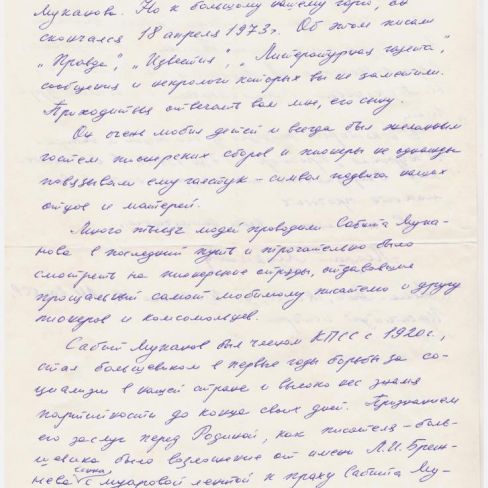 Муканова. Но к большому нашему горю, он
скончался 18 апреля 1973 г. Об этом писали
„Правда", „Известия", „Литературная газета",
сообщения и некрологи которых вы не заметили.
Приходится отвечать вам мне, его сыну.
Он очень любил детей и всегда был желанным
гостем пионерских сборов и пионеры не однажды
повязывали ему галстук – символ подвига наших
отцов и матерей.
Много тысяч людей проводили Сабита Мука-
нова в последний путь и трогательно было
смотреть на пионерские отряды, отдававшие
прощальный салют любимому писателю и другу
пионеров и комсомольцев.
Сабит Муканов был членом КПСС с 1920 г.,
стал большевиком в первые годы борьбы за со-
циализм в нашей стране и высоко нес знамя
партийности до конца своих дней. Признанием
его заслуг перед Родиной, как писателя-боль-
шевика было возложение от имени Л.И. Бреж-
нева венка с муаровой лентой к праху Сабита Му-